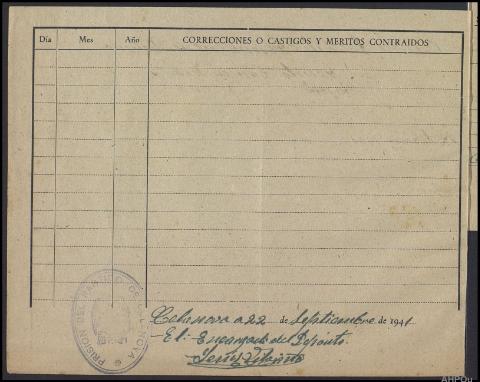 Día Mes Año CORRECCIONES O CASTIGOS Y MERITOS CONTRAIDOS
PRISION DEL PARTIDO DE
Celanova a 22 de Septiembre de 1941
El Encargado del Depósito
AHPOu